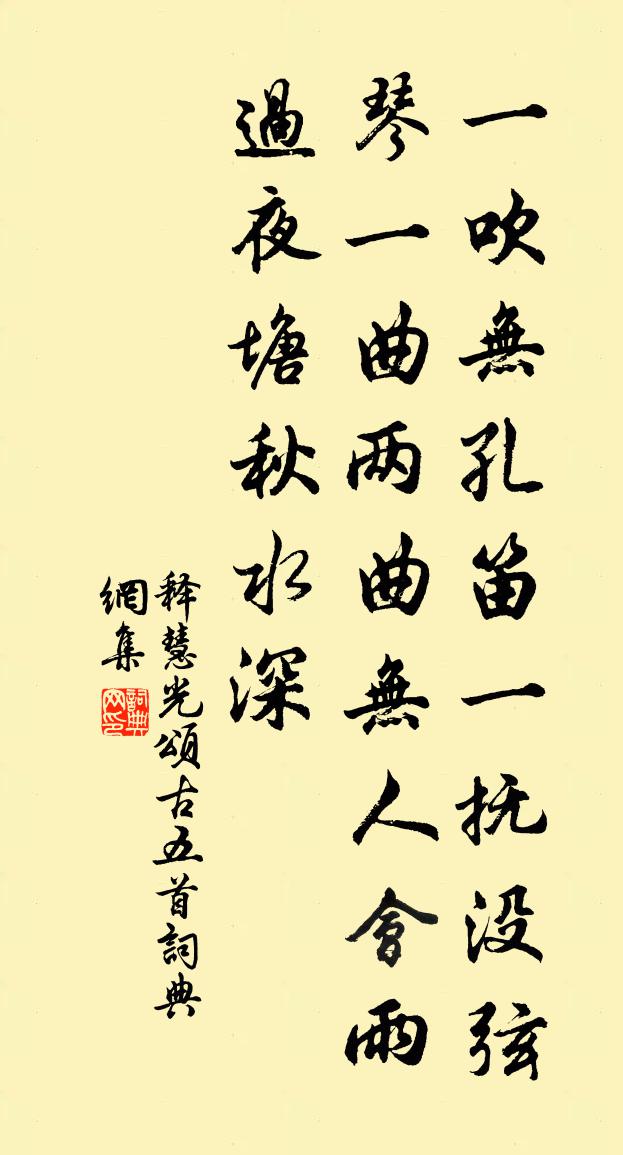 一吹無孔笛一抚没弦
琴一曲两曲無人會雨
過夜塘秋水深
释慧光頌古五首詞典
網集
詞典